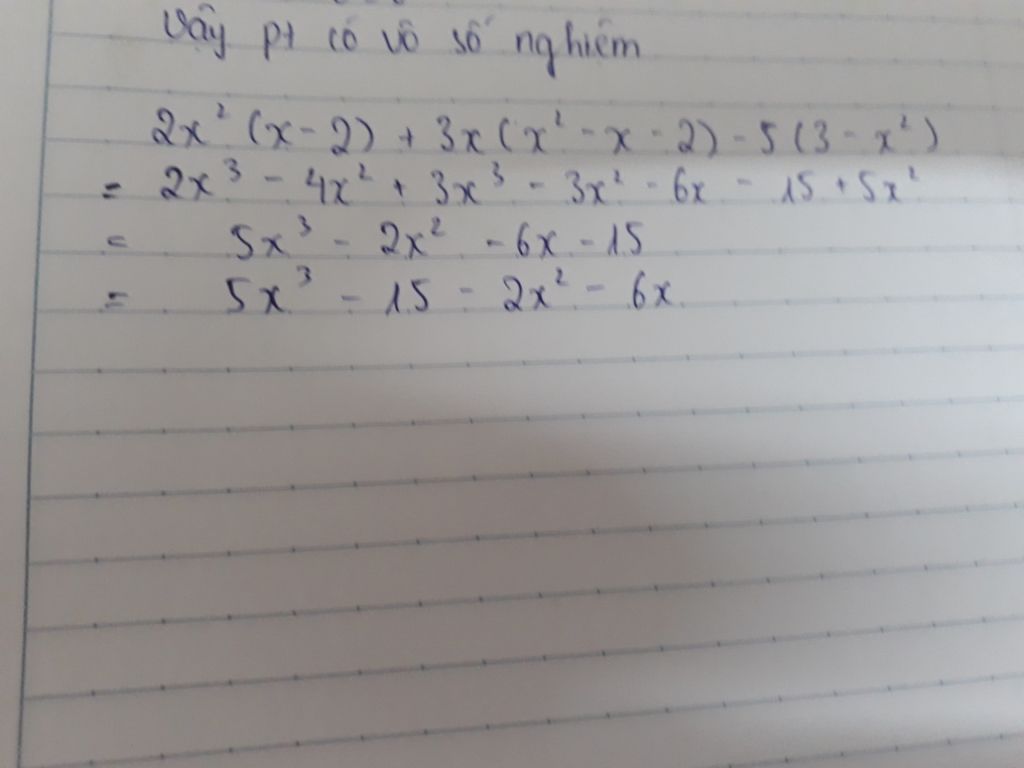 Vậy pt có vô số nghiệm
2x² (x - 2) + 3x (x² - x - 2) - 5 (3 - x²)
= 2x³ - 4x² + 3x³ - 3x² - 6x - 15 + 5x²
= 5x³ - 2x² - 6x - 15
= 5x³ - 15 - 2x² - 6x